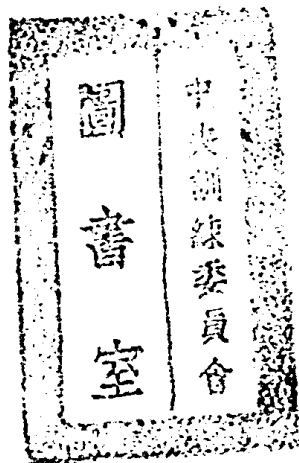 中央訓練委員會
圖書室